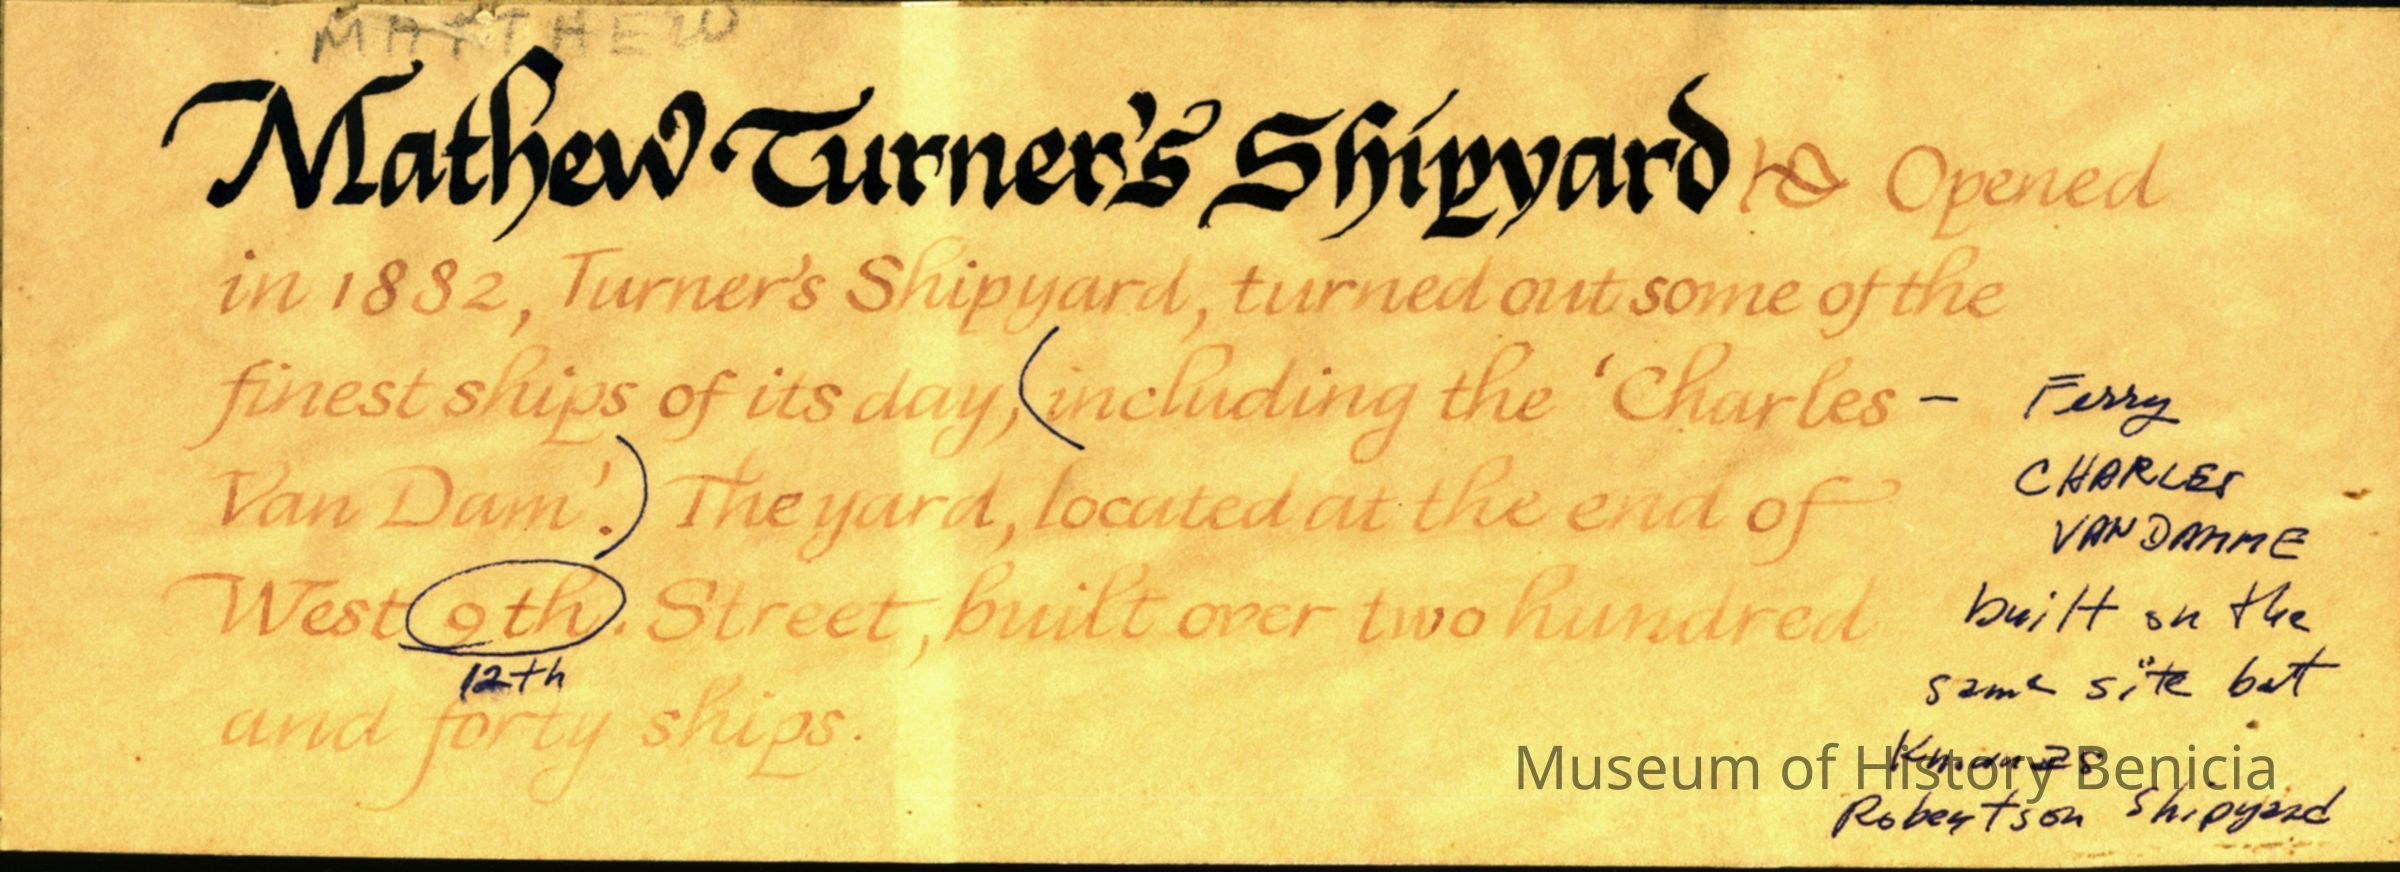 MATTHEW
Mathew Turner's Shipyard Opened
in 1882, Turner's Shipyard, turned out some of the
finest ships of its day, (including the 'Charles –
Van Dam'.) The yard, located at the end of
West 9th. Street, built over two hundred
12th
and forty ships.
Ferry
CHARLES
VAN DAMME
built on the
same site but
Known as
Robertson Shipyard
Museum of History Benicia